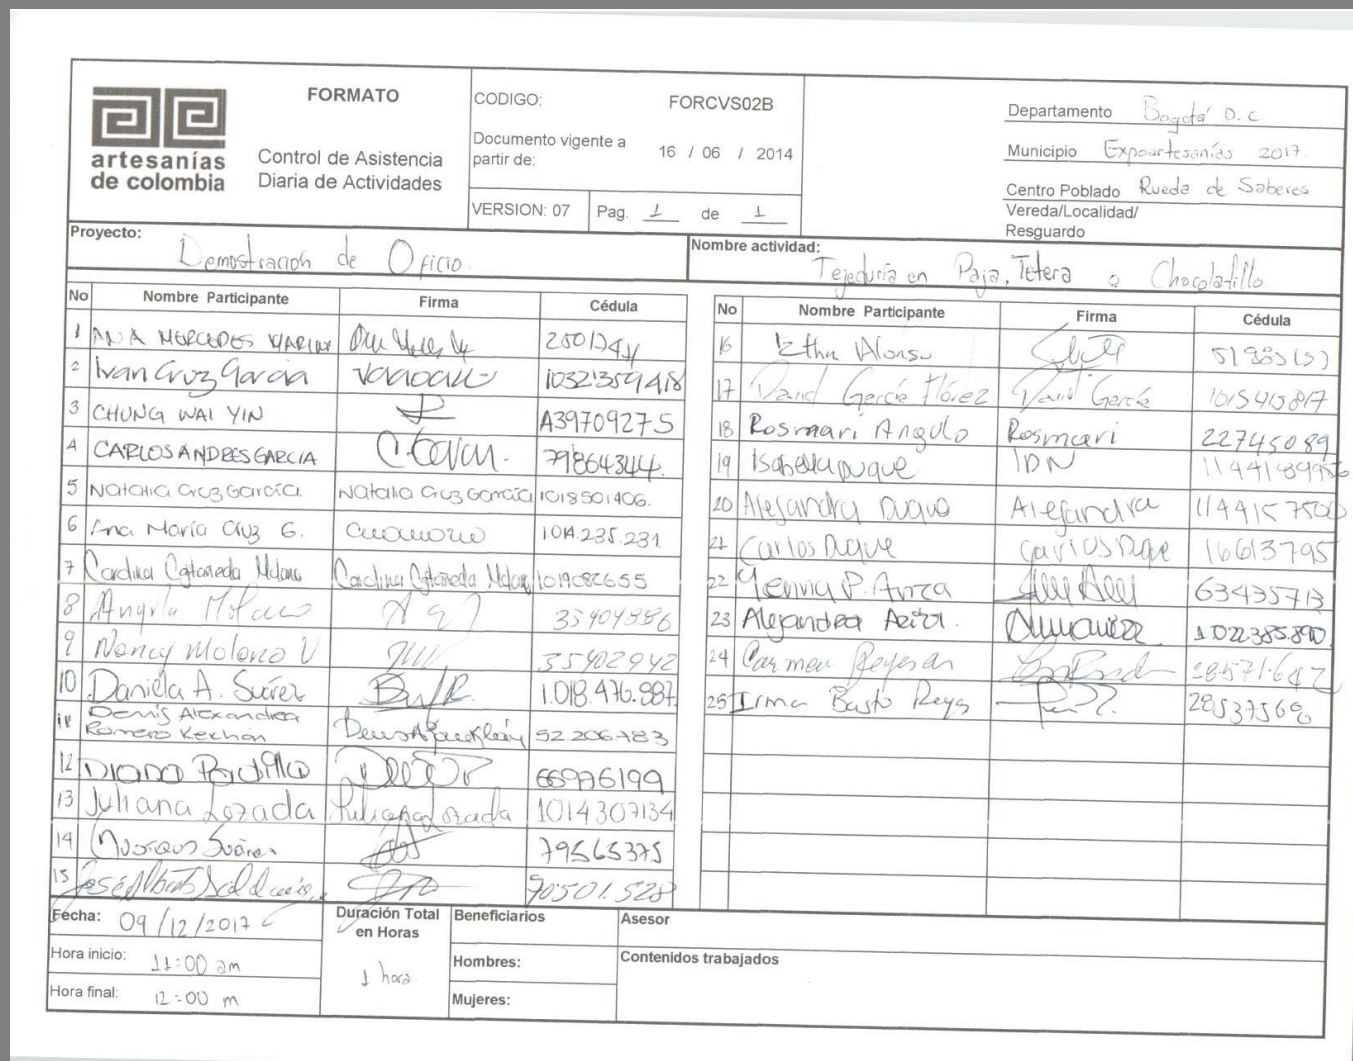 artesanías
de colombia
FORMATO
Control de Asistencia
Diaria de Actividades
CODIGO: FORCVS02B
Documento vigente a
partir de: 16 / 06 / 2014
VERSION: 07 Pag. 1 de 1
Departamento Bogotá D.C
Municipio Expoartesanías 2017.
Centro Poblado Rueda de Saberes
Vereda/Localidad/
Resguardo
Proyecto: Demostración de Oficio.
Nombre actividad: Tejeduría en Paja, Tetera o Chocolatillo
No Nombre Participante Firma Cédula
1 ANA MERCEDES
2 Ivan Cruz Garcia 1032359418
3 CHUNG WAI YIN A39709275
4 CARLOS ANDRES GARCIA 798643444.
5 Natalia Cruz García. Natalia Cruz García 1018501406.
6 Ana María Cruz G. 1.014.235.231.
7 Carolina Castañeda Molano Carolina Castañeda Molano 1019082655
8 Angela Molano
9 Nancy Molano V 35402942
10 Daniela A. Suárez 1.018.476.887
11 Denis Alexandra
Romero 52 206783
12 Diana Padilla 66976199
13 Juliana Lozada Juliana Lozada 1014307134
14 Suárez 79565375
15 José Alberto 90501.528
No Nombre Participante Firma Cédula
16 Alonso
17 David García Flórez David García 1015415817
18 Rosmari Angulo Rosmari 22745089
19 Isabella Duque IDN
20 Alejandra Duque Alejandra 1144157500
21 Carlos Duque Carlos Duque 16613795
22 Yenny P. Ariza 63435713
23 Alejandra Ariza. 1.022.385.890.
24 Carmen 28571.647
25 Irma Basto Reyes
Fecha: 09/12/2017
Hora inicio: 11:00 am
Hora final: 12:00 m
Duración Total
en Horas
1 hora
Beneficiarios
Hombres:
Mujeres:
Asesor
Contenidos trabajados